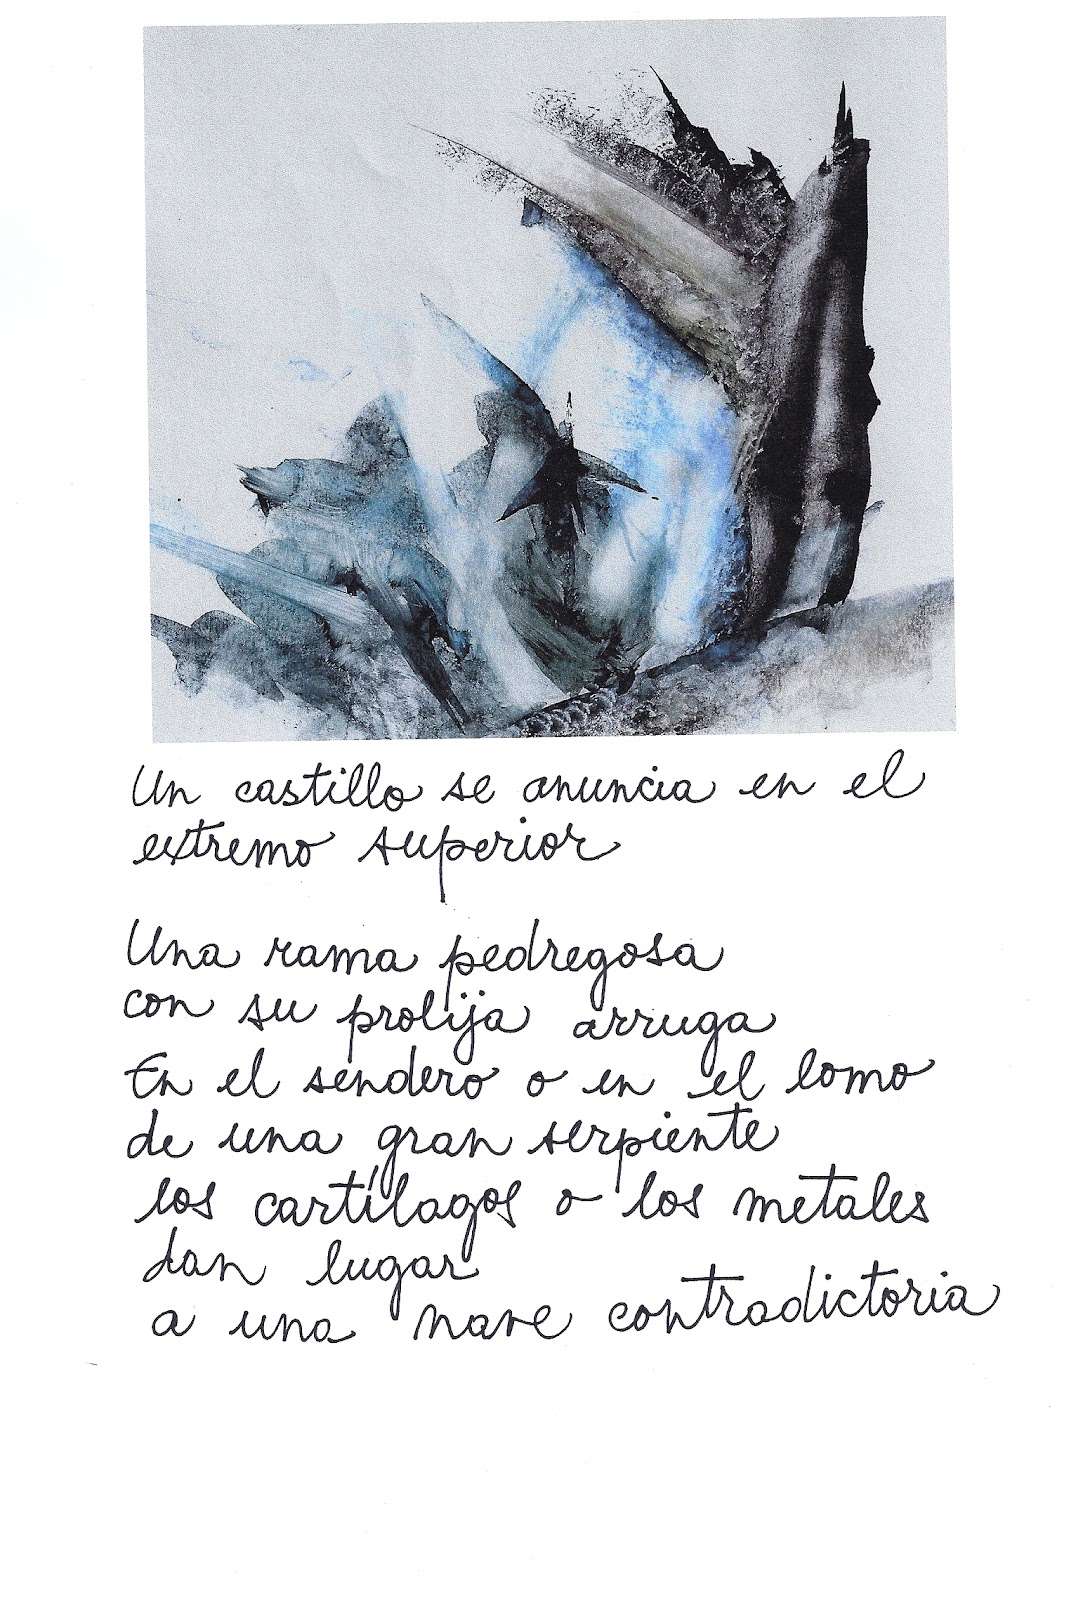 Un castillo se anuncia en el
extremo superior
Una rama pedregosa
con su prolija arruga
En el sendero o en el lomo
de una gran serpiente
los cartílagos o los metales
dan lugar
a una nave contradictoria